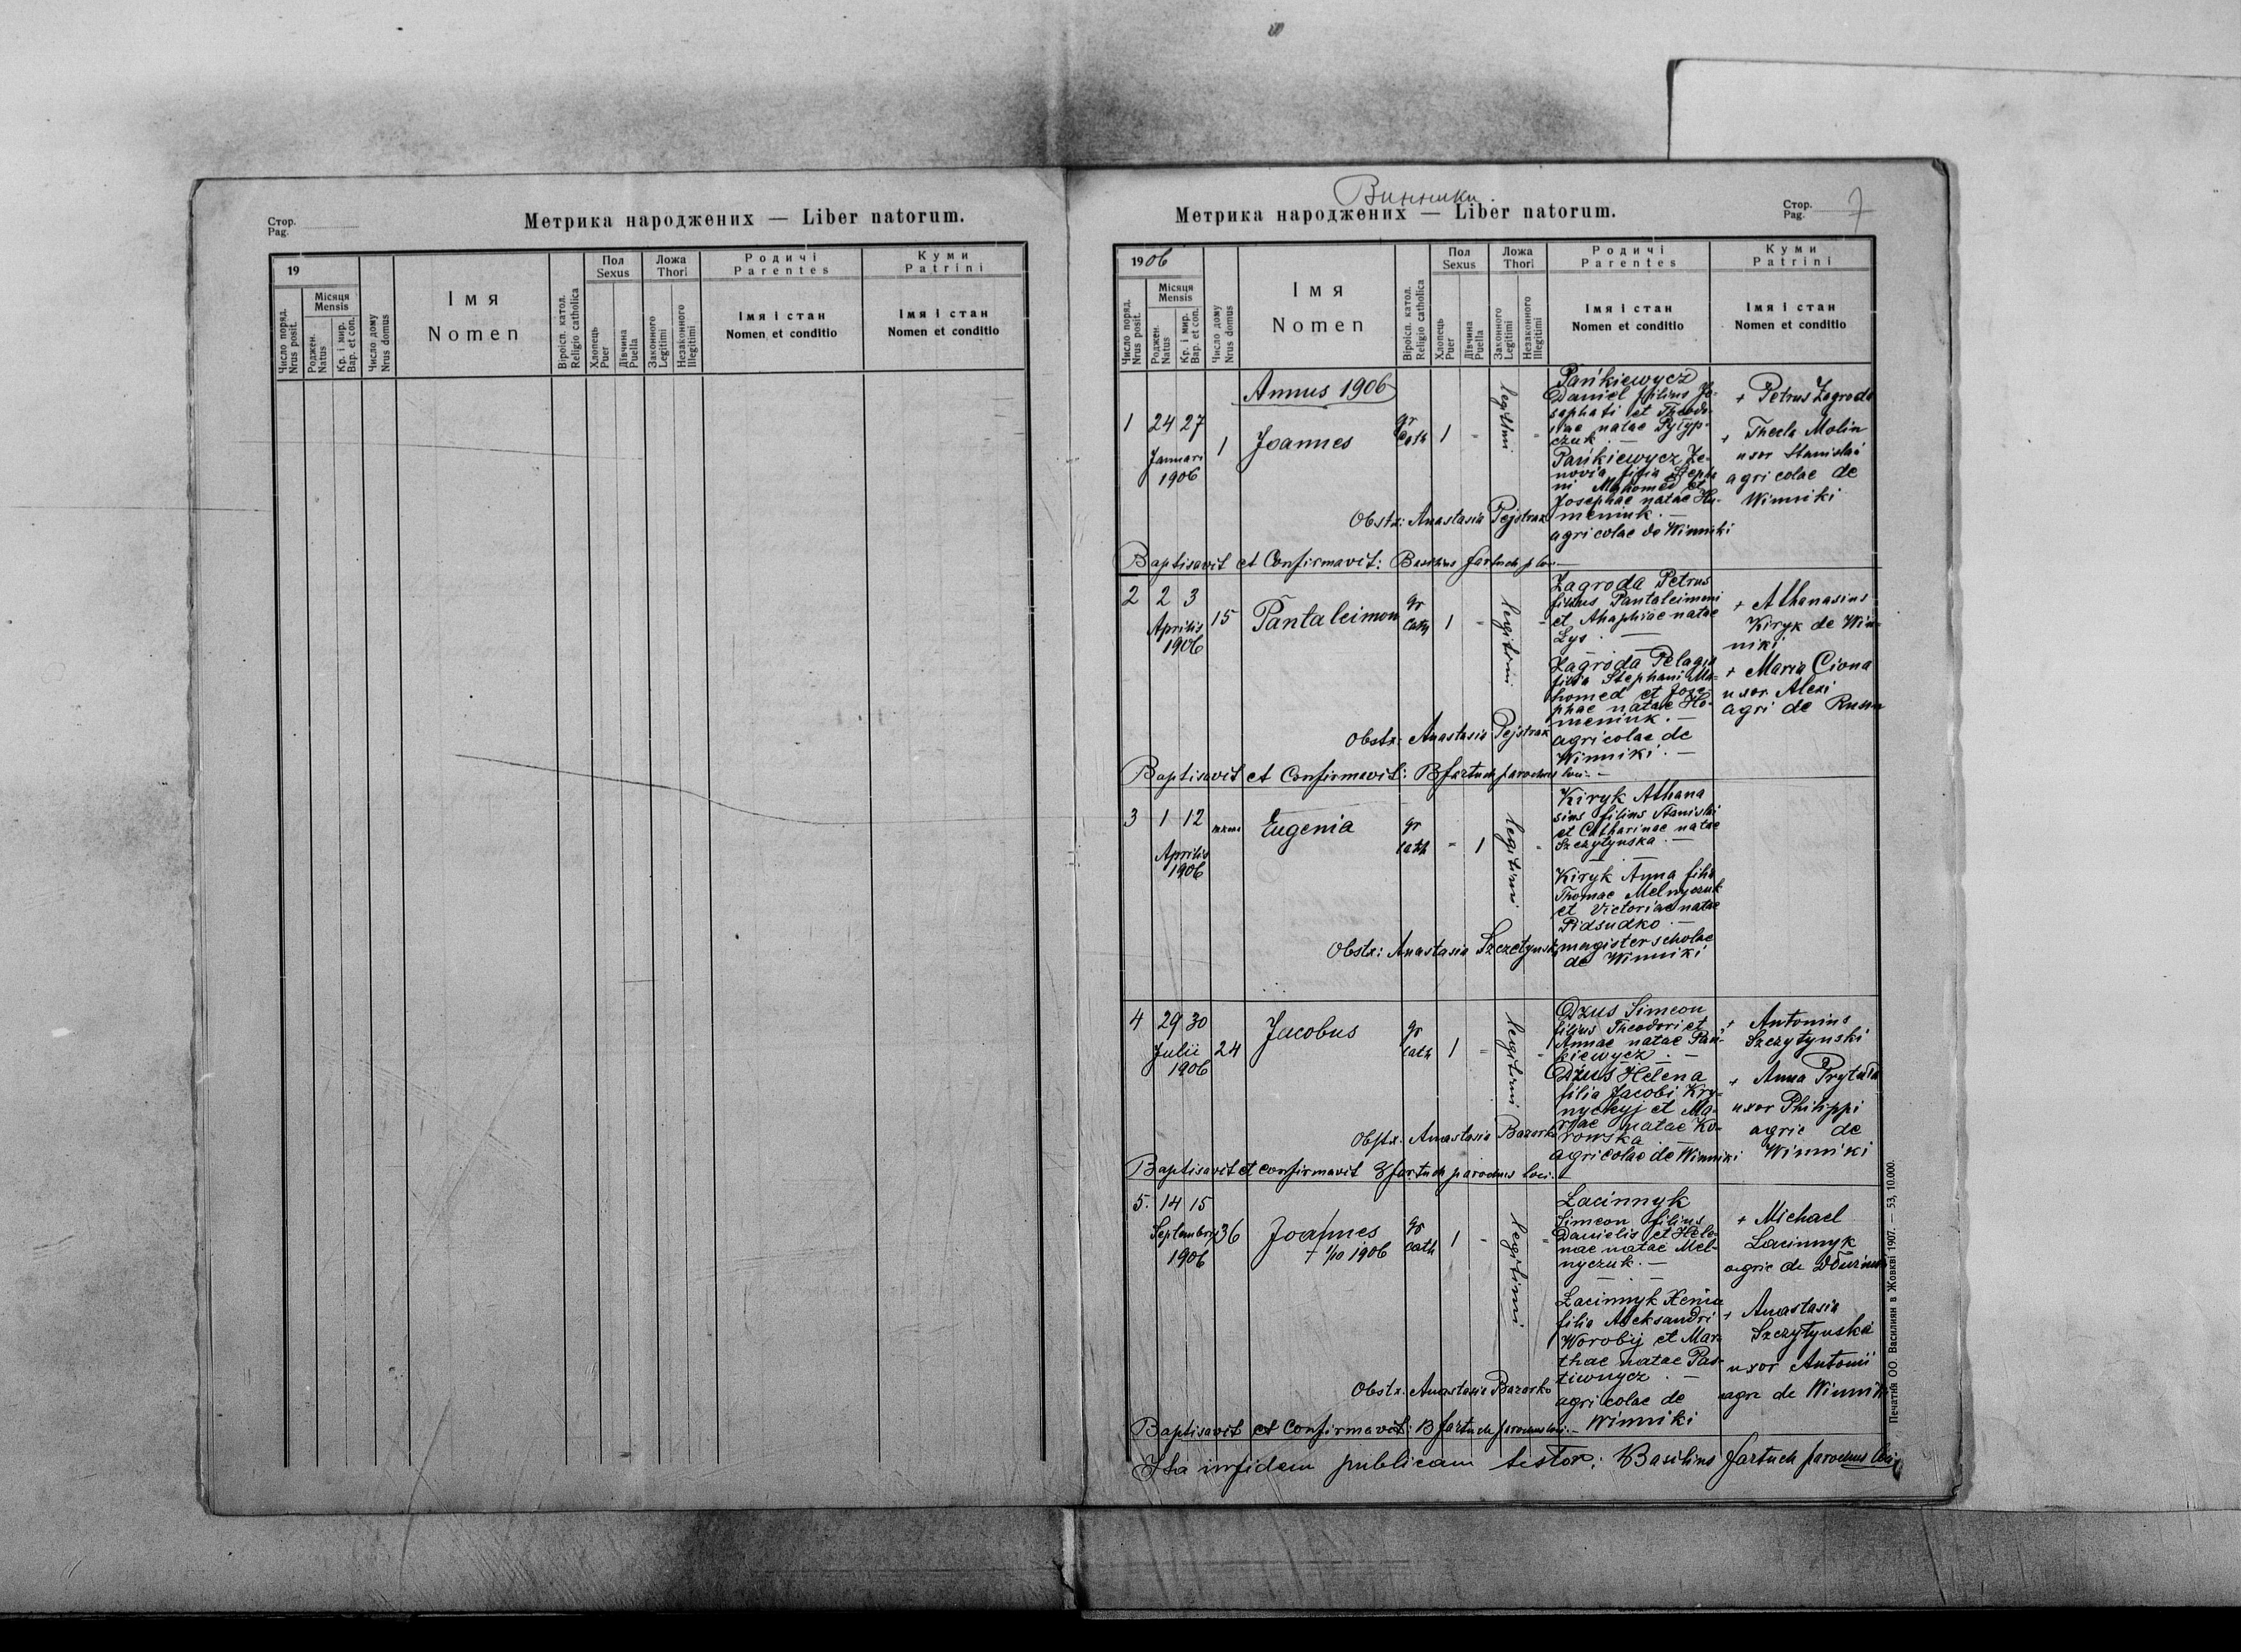 Стор.
Pag.
Метрика народжених — Liber natorum.
19
Число поряд.
Nrus posit.
Місяця
Mensis
Роджен.
Natus
Кр. і мир.
Bap. et con.
Число дому
Nrus domus
Імя
Nomen
Віроісп. катол.
Religio catholica
Пол
Sexus
Хлопець
Puer
Дівчина
Puella
Ложа
Thori
Законного
Legitimi
Незаконного
Illegitimi
Родичі
Parentes
Імя і стан
Nomen et conditio
Куми
Patrini
Імя і стан
Nomen et conditio
Винники.
Метрика народжених — Liber natorum.
Стор.
Pag.
7
1906
Число поряд.
Nrus posit.
Місяця
Mensis
Роджен.
Natus
Кр. і мир.
Bap. et con.
Число дому
Nrus domus
Імя
Nomen
Віроісп. катол.
Religio catholica
Пол
Sexus
Хлопець
Puer
Дівчина
Puella
Ложа
Thori
Законного
Legitimi
Незаконного
Illegitimi
Родичі
Parentes
Імя і стан
Nomen et conditio
Куми
Patrini
Імя і стан
Nomen et conditio
Annus 1906
1 24 27
Januari
1906
1
Joannes
gr
Cath
1 "
legitimi
"
Pańkiewycz
Daniel filius Jo-
saphati et Theodo-
siae natae Pylyp-
czuk. —
Pańkiewycz Ze-
novia filia Steph
ni Mahomed et
Josephae natae Hu-
meniuk. —
agricolae de Winniki
+ Petrus Zagroda
+ Thecla Molin
uxor Stanislai
agricolae de
Winniki
Obstx: Anastasia Pejstrak
Baptisavit et Confirmavit: Basilius Fartuch p loci
2 2 3
Aprilis
1906
15
Pantaleimon
gr
Cath
1 "
legitimi
"
Zagroda Petrus
filius Pantaleimoni
et Ahaphiae natae
Lys. —
Zagroda Pelagia
filia Stephani Ma-
homed et Jose-
phae natae Ho-
meniuk. —
agricolae de
Winniki. —
+ Athanasius
Kiryk de Win-
niki
+ Maria Ciona
uxor Alexi
agri de
Obstx: Anastasia Pejstrak
Baptisavit et Confirmavit: B Fartuch parochus loci. —
3 1 12
Aprilis
1906
Eugenia
gr
cath
" 1
legitimi
"
Kiryk Athana
sius filius Stanislai
et Catharinae natae
Szczytynska. —
Kiryk Anna filia
Thomae Melnyczuk
et Victoriae natae
Pidsudko. —
magister scholae
de Winniki
Obstx: Anastasia Szczetynska
4 29 30
Julii
1906
24
Jacobus
gr
cath
1 "
legitimi
"
Dzus Simeon
filius Theodori et
Annae natae Pań-
kiewycz. —
Dzus Helena
filia Jacobi Kry-
nyckyj et Ma-
riae natae Ko-
rowska. —
agricolae de Winniki
+ Antonius
Szczytynski
+ Anna Prytula
uxor Philippi
agric de
Winniki
Obstx. Anastasia Bazarko
Baptisavit et confirmavit B Fartuch parochus loci.
5. 14 15
Septembris
1906
36
Joannes
+ 1/10 1906
gr
cath
1 "
legitimi
"
Łacinnyk
Simeon filius
Danielis et Hele-
nae natae Mel-
nyczuk. —
Łacinnyk Xenia
filia Aleksandri
Worobij et Mar-
thae natae Pas-
tiwnycz. —
agricolae de
Winniki
+ Michael
Łacinnyk
agric de
+ Anastasia
Szczytynska
uxor Antonii
agri de Winniki
Obstx. Anastasia Bazarko
Baptisavit et Confirmavit: B Fartuch parochus loci. —
Ita in fidem publicam testor: Basilius Fartuch parochus loci
Печатня ОО. Василиян в Жовкві 1907. — 53, 10.000.